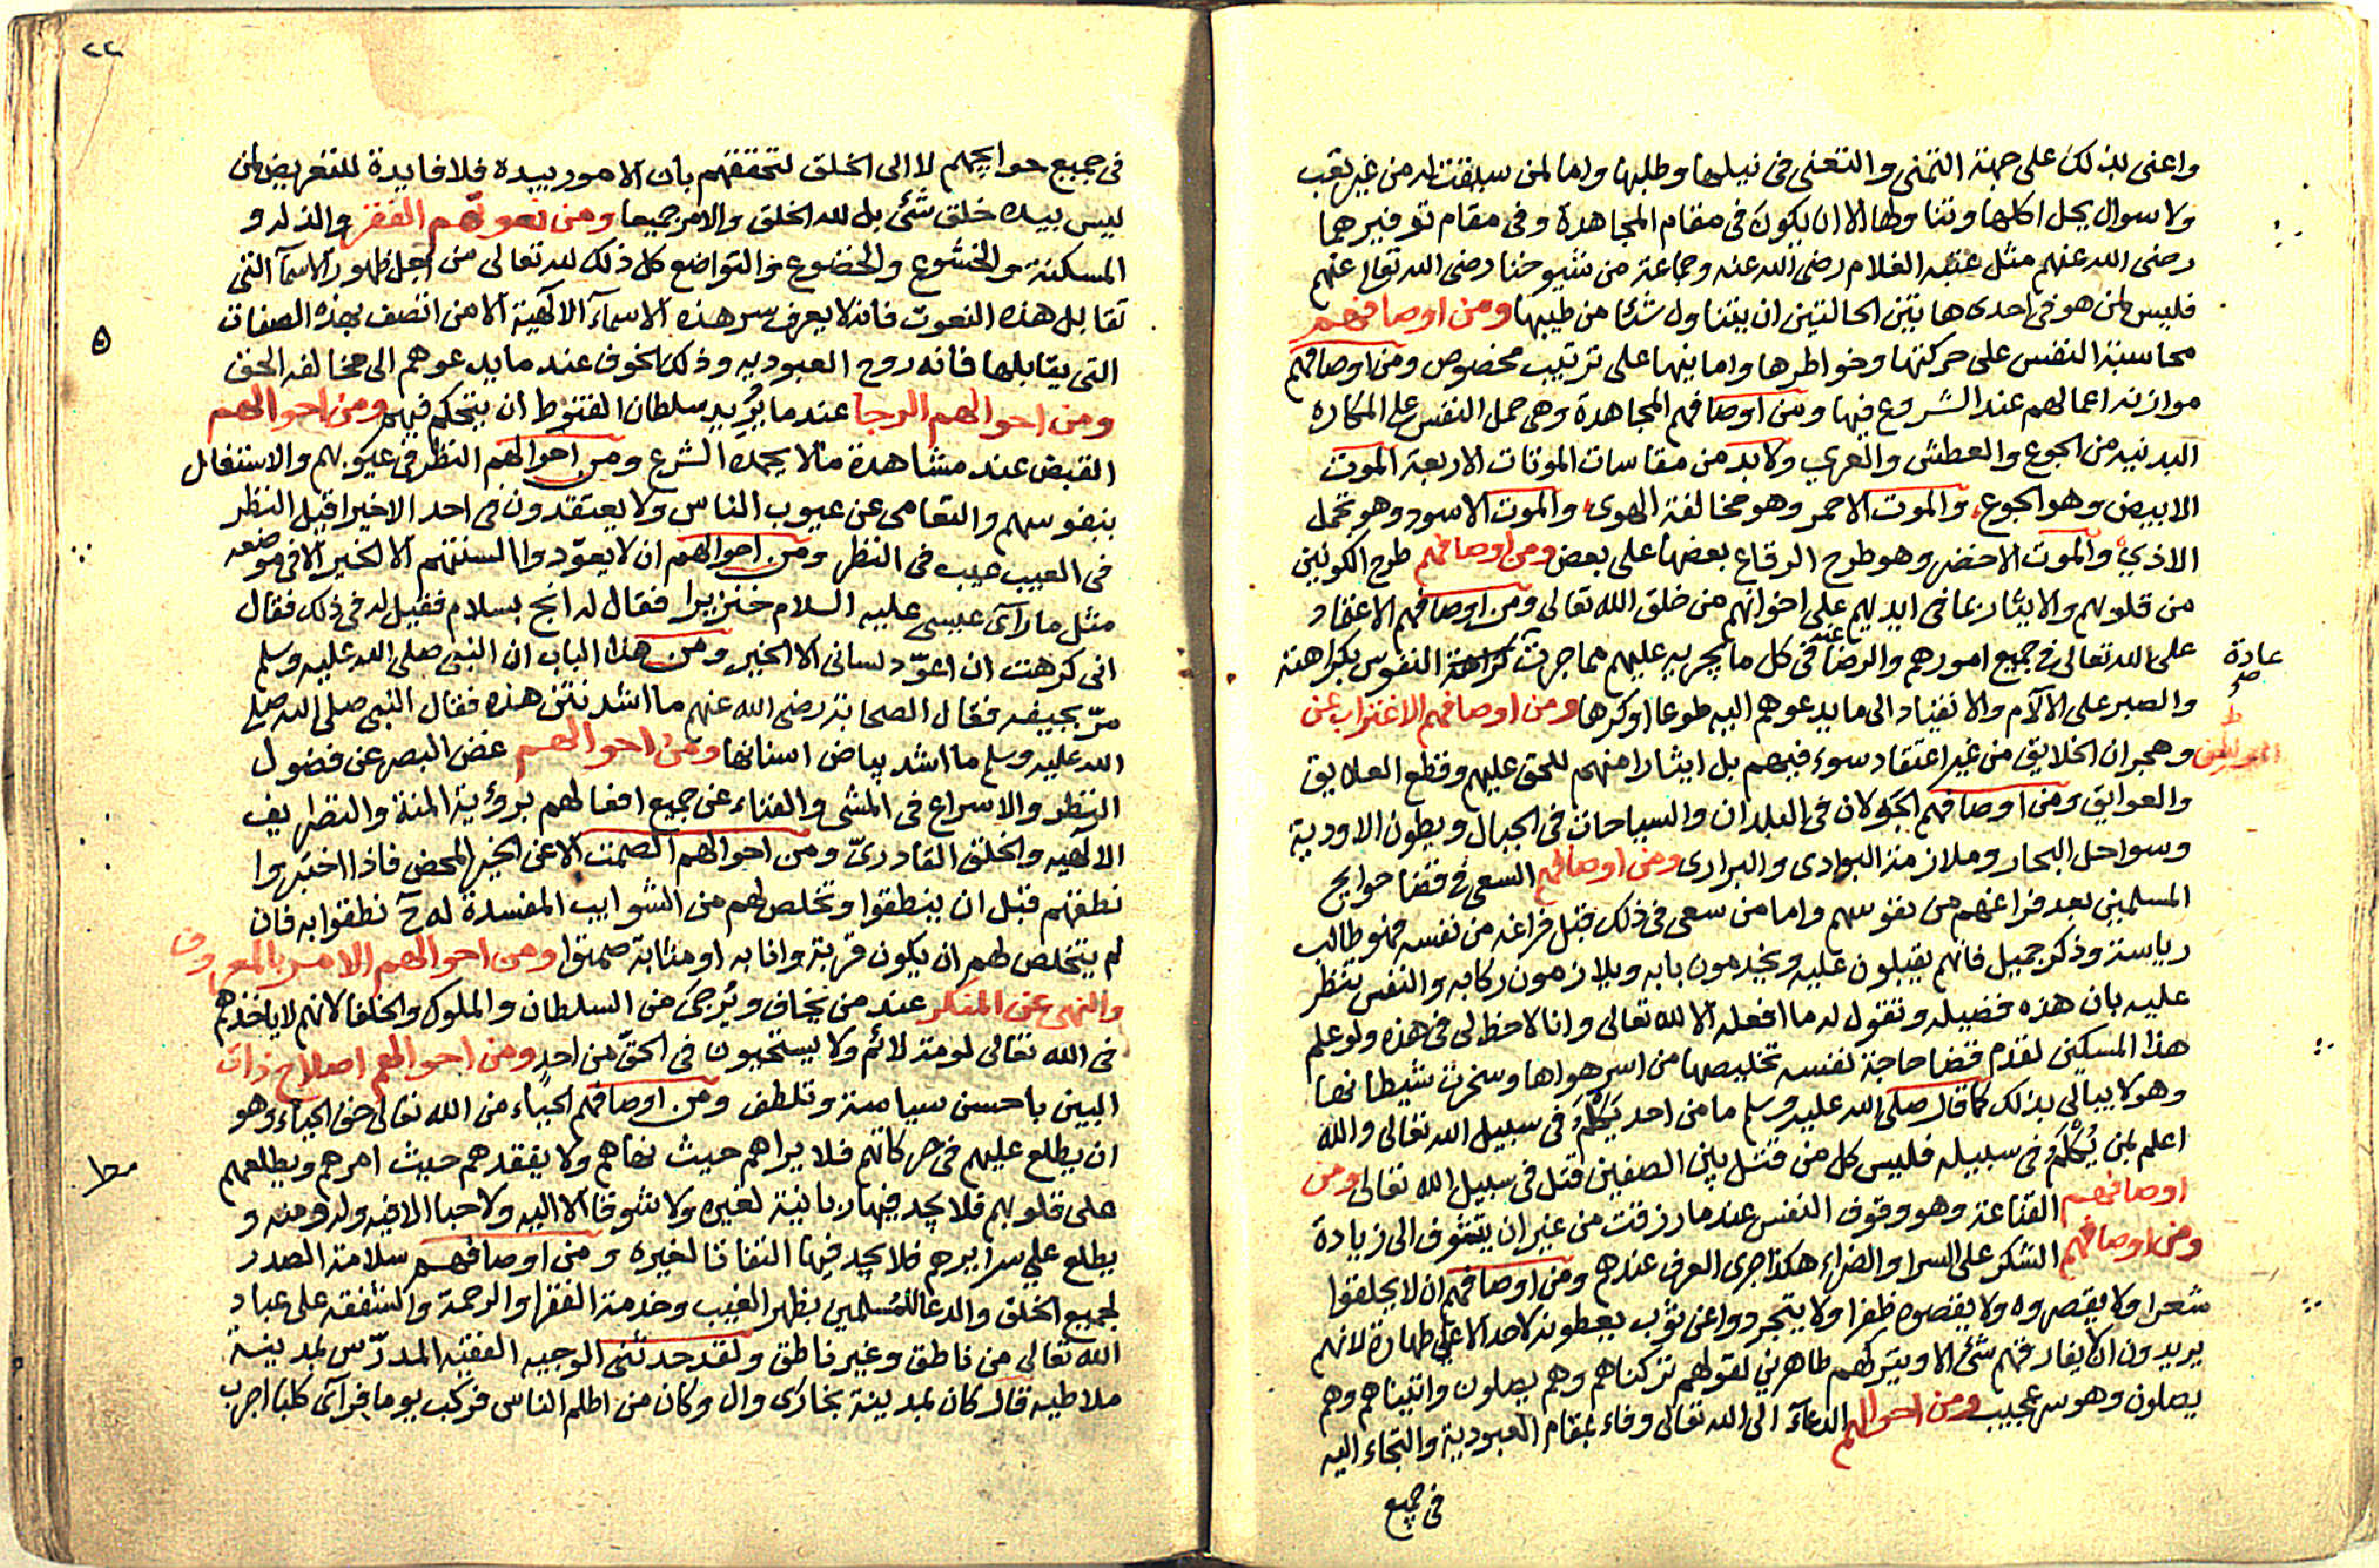 واعنى بذلك على جهة التمنى والتعنى فى نيلها وطلبها واما لمن سبقت له من غير تعب
ولا سوال يحل اكلها وتناولها الا ان يكون فى مقام المجاهدة وفى مقام توفيرهما
رضى الله عنهم مثل عتبه الغلام رضى الله عنه وجماعة من شيوخنا رضى الله تعالى عنهم
فليس لمن هو فى احدى هاتين الحالتين ان يتناول شئا من طيبها ومن اوصافهم
محاسبة النفس على حركتها وخواطرها وامانيها على ترتيب مخصوص ومن اوصافهم
موازنه اعمالهم عند الشروع فيها ومن اوصافهم المجاهدة وهى حمل النفس على المكاره
البدنيه من الجوع والعطش والعرى ولابد من مقاسات الموتات الاربعة الموت
الابيض وهو الجوع والموت الاحمر وهو مخالفة الهوى والموت الاسود وهو تحمل
الاذى والموت الاخضر وهو طرح الرقاع بعضها على بعض ومن اوصافهم طرح الكونين
من قلوبهم والايثار بما فى ايديهم على اخوانهم من خلق الله تعالى ومن اوصافهم الاعتماد
على الله تعالى فى جميع امورهم والرضا عنه فى كل ما يجريه عليهم مما جرت كراهة النفوس بكراهته
عادة
صح
والصبر على الآلام والانقياد الى ما يدعوهم اليه طوعا او كرها ومن اوصافهم الاغتراب عن
الموطن وهجران الخلايق من غير اعتقاد سوء فيهم بل ايثارا منهم للحق عليهم وقطع العلايق
والعوايق ومن اوصافهم الجولان فى البلدان والسياحات فى الجبال وبطون الاودية
وسواحل البحار وملازمة البوادى والبرارى ومن اوصافهم السعى فى قضا حوايج
المسلمين بعد فراغهم من نفوسهم واما من سعى فى ذلك قبل فراغه من نفسه فهو طالب
رياسة وذكر جميل فانهم يقبلون عليه ويخدمون بابه ويلازمون ركابه والنفس تنظر
عليه بان هذه فضيله وتقول له ما افعله الا لله تعالى وانا لا حظ لى فى هذه ولو علم
هذا المسكين لقدم قضا حاجة نفسه تخليصها من اسر هواها وسخرت شيطانها
وهو لا يبالى بذلك كما قال صلى الله عليه وسلم ما من احد يكلم فى سبيل الله تعالى والله
اعلم لمن يكلم فى سبيله فليس كل من قتل بين الصفين قتل فى سبيل الله تعالى ومن
اوصافهم القناعة وهو وقوف النفس عند ما رزقت من غير ان يتشوف الى زيادة
ومن اوصافهم الشكر على السرا والضراء هكذا جرى العرف عندهم ومن اوصافهم ان لا يحلقوا
شعرا ولا يقصروه ولا يقصوه ظفرا ولا يتجردوا عن ثوب يعطونه لاحد الا على طهارة لانهم
يريدون ان لا يفارقهم شئ الا ويتركهم طاهرين لقولهم تركناهم وهم يصلون واتيناهم وهم
يصلون وهو سر عجيب ومن احوالهم الدعآء الى الله تعالى وفاء بمقام العبودية والتجاء اليه
فى جميع
٢٢
فى جميع حوايجهم لا الى الخلق لتحققهم بان الامور بيده فلا فايدة للتعريض لمن
ليس بيده خلق شئ بل لله الخلق والامر جميعا ومن نعوتهم الفقر والذله و
المسكنة والخشوع والخضوع والتواضع كل ذلك لله تعالى من اجل ظهور الاسمآ التى
تقابل هذه النعوت فانه لا يعرف سر هذه الاسمآء الالهية الا من اتصف بهذه الصفات
التى يقابلها فانه روح العبوديه وذلك الخوف عند ما يدعوهم الى مخالفه الحق
ومن احوالهم الرجا عند ما يريد سلطان القنوط ان يتحكم فيهم ومن احوالهم
القبض عند مشاهدة ما لا يحمده الشرع ومن احوالهم النظر فى عيوبهم والاشتغال
بنفوسهم والتعامى عن عيوب الناس ولا يعتقدون فى احد الا خيرا قيل النظر
فى العيب عيب فى النظر ومن احوالهم ان لا يعوّدوا السنتهم الا الخير الا فى موضعه
مثل ما رآى عيسى عليه السلام خنزيرا فقال له انج بسلام فقيل له فى ذلك فقال
انى كرهت ان اعوّد لسانى الا الخير ومن هذا الباب ان النبى صلى الله عليه وسلم
مرّ بجيفه فقال الصحابة رضى الله عنهم ما اشد نتن هذه فقال النبى صلى الله صلى
الله عليه وسلم ما اشد بياض اسنانها ومن احوالهم غض البصر عن فضول
النظر والاسراع فى المشى والفناء عن جميع افعالهم برؤية المنة والتصاريف
الالهيه والخلق القادرىّ ومن احوالهم الصمت الا عن الخير المحض فاذا اختبروا
نطقهم قبل ان ينطقوا وتخلص لهم من الشوايب المفسدة له ح نطقوا به فان
لم يتخلص لهم ان يكون قربة وانابه او مثابة صمتوا ومن احوالهم الامر بالمعروف
والنهى عن المنكر عند من يخاف ويرجى من السلطان والملوك والخلفا لانهم لا ياخذهم
فى الله تعالى لومة لائم ولا يستحيون فى الحق من احد ومن احوالهم اصلاح ذات
البين باحسن سياسة وتلطف ومن اوصافهم الحياء من الله تعالى حق الحياء وهو
ان يطلع عليهم فى حركاتهم فلا يراهم حيث نهاهم ولا يفقدهم حيث امرهم ويطلعهم
على قلوبهم فلا يجد فيها ربانية لغيره ولا شوقا الا اليه ولا حبا الا فيه وله ومنه و
يطلع على سرايرهم فلا يجد فيها التفاتا لغيره ومن اوصافهم سلامة الصدر
لجميع الخلق والدعا للمسلمين بظهر الغيب وخدمة الفقرا والرحمة والشفقه على عباد
الله تعالى من ناطق وغير ناطق ولقد حدثنى الوجيه الفقيه المدرّس بمدينة
ملاطيه قال كان بمدينة بخارى وال وكان من اظلم الناس فركب يوما فرآى كلبا اجرب